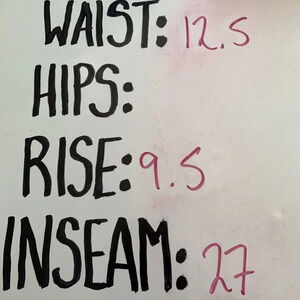 WAIST: 12.5
HIPS:
RISE: 9.5
INSEAM: 27